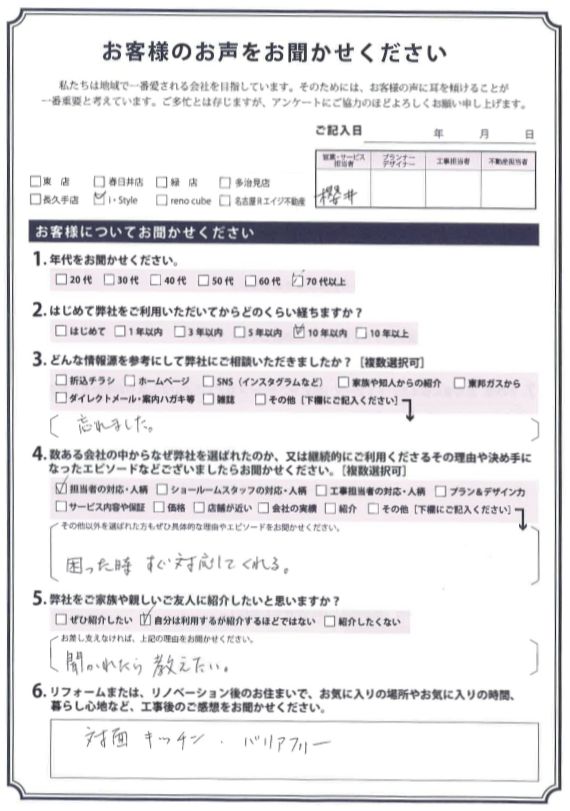 お客様のお声をお聞かせください
私たちは地域で一番愛される会社を目指しています。そのためには、お客様の声に耳を傾けることが
一番重要と考えています。ご多忙とは存じますが、アンケートにご協力のほどよろしくお願い申し上げます。
ご記入日 年 月 日
営業・サービス担当者 プランナーデザイナー 工事担当者 不動産担当者
櫻井
□東 店 □春日井店 □緑 店 □多治見店
□長久手店 ☑i・Style □reno cube □名古屋Rエイジ不動産
お客様についてお聞かせください
1. 年代をお聞かせください。
□20代 □30代 □40代 □50代 □60代 ☑70代以上
2. はじめて弊社をご利用いただいてからどのくらい経ちますか？
□はじめて □1年以内 □3年以内 □5年以内 ☑10年以内 □10年以上
3. どんな情報源を参考にして弊社にご相談いただきましたか？［複数選択可］
□折込チラシ □ホームページ □SNS（インスタグラムなど） □家族や知人からの紹介 □東邦ガスから
□ダイレクトメール・案内ハガキ等 □雑誌 □その他［下欄にご記入ください］
忘れました。
4. 数ある会社の中からなぜ弊社を選ばれたのか、又は継続的にご利用くださるその理由や決め手に
なったエピソードなどございましたらお聞かせください。［複数選択可］
☑担当者の対応・人柄 □ショールームスタッフの対応・人柄 □工事担当者の対応・人柄 □プラン＆デザイン力
□サービス内容や保証 □価格 □店舗が近い □会社の実績 □紹介 □その他［下欄にご記入ください］
その他以外を選ばれた方もぜひ具体的な理由やエピソードをお聞かせください。
困った時 すぐ対応してくれる。
5. 弊社をご家族や親しいご友人に紹介したいと思いますか？
□ぜひ紹介したい ☑自分は利用するが紹介するほどではない □紹介したくない
お差し支えなければ、上記の理由をお聞かせください。
聞かれたら 教えたい。
6. リフォームまたは、リノベーション後のお住まいで、お気に入りの場所やお気に入りの時間、
暮らし心地など、工事後のご感想をお聞かせください。
対面 キッチン ・ バリアフリー